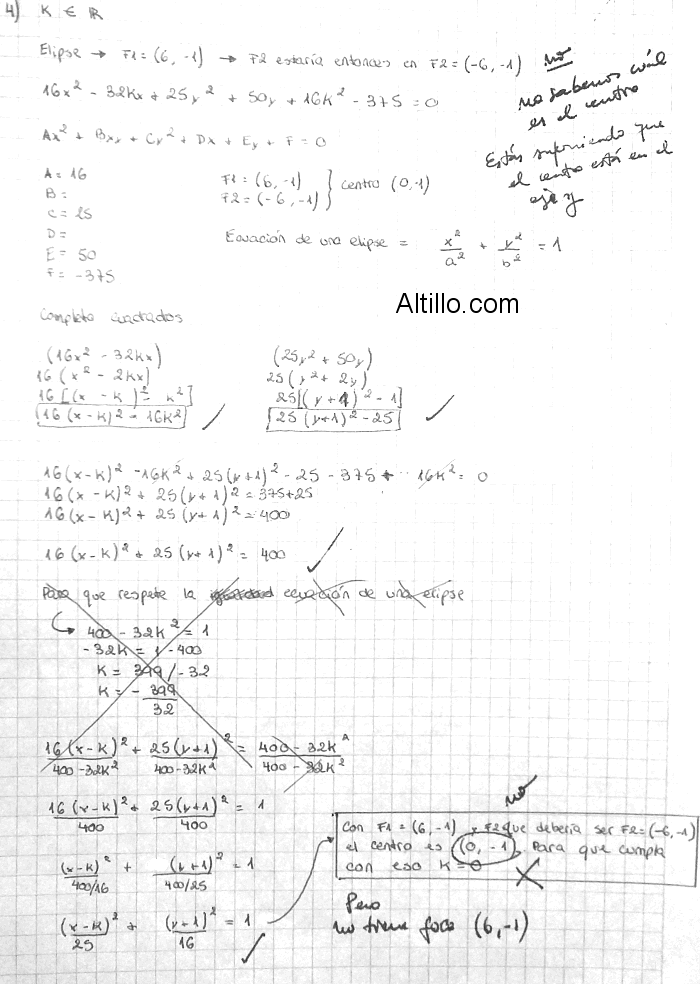 4) K ∈ ℝ
Elipse → F1 = (6, -1) → F2 estaría entonces en F2 = (-6, -1) no
no sabemos cuál
es el centro
Estás suponiendo que
el centro está en el
eje y
16x² - 32Kx + 25y² + 50y + 16K² - 375 = 0
Ax² + Bxy + Cy² + Dx + Ey + F = 0
A = 16
B =
C = 25
D =
E = 50
F = -375
F1 = (6, -1)
F2 = (-6, -1) } centro (0, -1)
Ecuación de una elipse = x²/a² + y²/b² = 1
Altillo.com
Completo cuadrados
(16x² - 32Kx)
16(x² - 2Kx)
16[(x - K)² - K²]
16(x - K)² - 16K²
(25y² + 50y)
25(y² + 2y)
25[(y + 1)² - 1]
25(y + 1)² - 25
16(x - K)² - 16K² + 25(y + 1)² - 25 - 375 + 16K² = 0
16(x - K)² + 25(y + 1)² = 375 + 25
16(x - K)² + 25(y + 1)² = 400
16(x - K)² + 25(y + 1)² = 400
Para que respete la ecuación de una elipse
400 - 32K² = 1
-32K = 1 - 400
K = 399 / -32
K = - 399/32
16(x - K)²/400 - 32K² + 25(y + 1)²/400 - 32K² = 400 - 32K²/400 - 32K²
16(x - K)²/400 + 25(y + 1)²/400 = 1
(x - K)²/400/16 + (y + 1)²/400/25 = 1
(x - K)²/25 + (y + 1)²/16 = 1
no
Con F1 = (6, -1) y F2 que debería ser F2 = (-6, -1)
el centro es (0, -1). Para que cumpla
con eso K = 0
Pero
no tiene foco (6, -1)